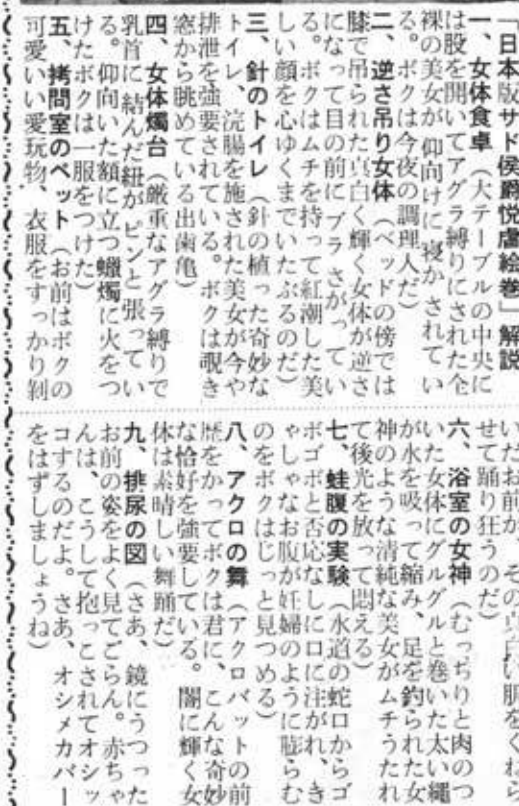 「日本版サド侯爵悦虐絵巻」解説
一、女体食卓（大テーブルの中央に
は股を開いてアグラ縛りにされた全
裸の美女が仰向けに寝かされてい
る。ボクは今夜の調理人だ）
二、逆さ吊り女体（ベッドの傍では
膝で吊られた真白く輝く女体が逆さ
になって目の前にブラさがってい
る。ボクはムチを持って紅潮した美
しい顔を心ゆくまでいたぶるのだ）
三、針のトイレ（針の植った奇妙な
トイレ、浣腸を施された美女が今や
排泄を強要されている。ボクは覗き
窓から眺めている出歯亀）
四、女体燭台（厳重なアグラ縛りで
乳首に結んだ紐がピンと張ってい
る。仰向いた額に立つ蠟燭に火をつ
けたボクは一服をつけた）
五、拷問室のペット（お前はボクの
可愛いい愛玩物、衣服をすっかり剝
いだお前が、その真白い肌をくねら
せて踊り狂うのだ）
六、浴室の女神（むっちりと肉のつ
いた女体にグルグルと巻いた太い縄
が水を吸って縮み、足を釣られた女
神のような清純な美女がムチうたれ
て後光を放って悶える）
七、蛙腹の実験（水道の蛇口からゴ
ボゴボと否応なしに口に注がれ、き
ゃしゃなお腹が妊婦のように膨らむ
のをボクはじっと見つめる）
八、アクロの舞（アクロバットの前
歴をかってボクは君に、こんな奇妙
な恰好を強要している。闇に輝く女
体は素晴しい舞踊だ）
九、排尿の図（さあ、鏡にうつった
お前の姿をよく見てごらん。赤ちゃ
んは、こうして抱っこされてオシッ
コするのだよ。さあ、オシメカバー
をはずしましょうね）